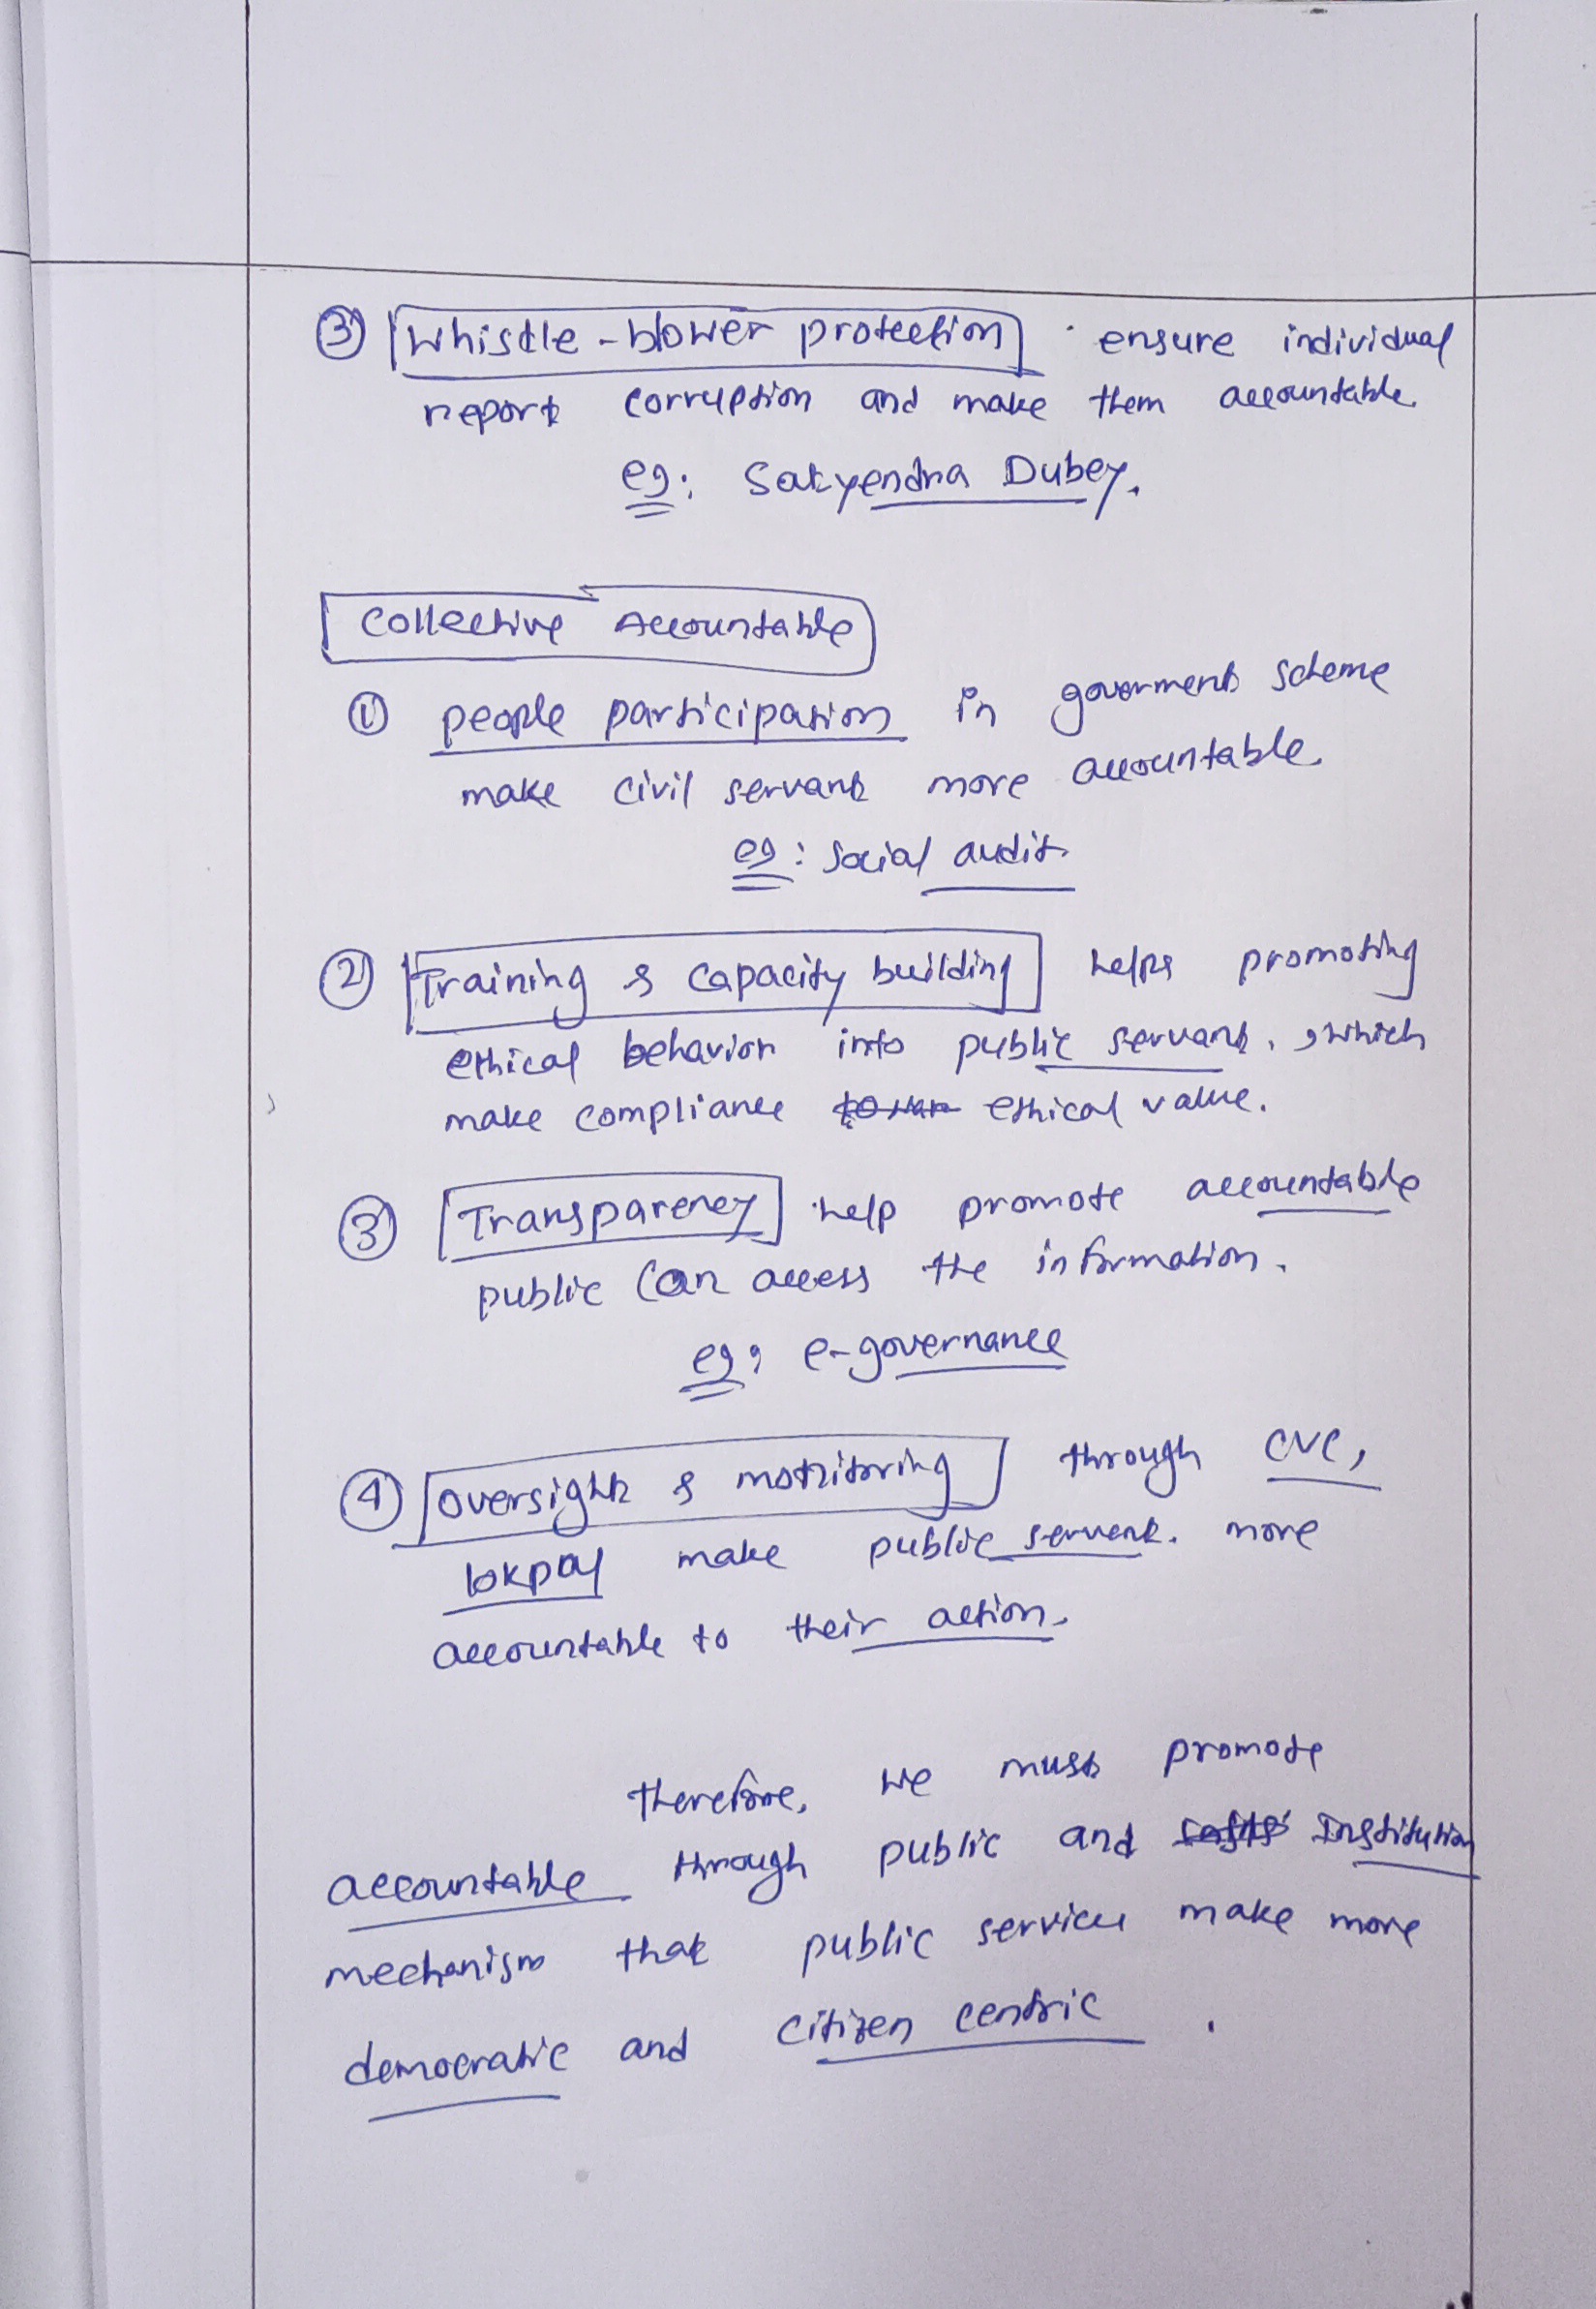 ③ whistle-blower protection ensure individual
report corruption and make them accountable.
eg: Satyendra Dubey.
Collective Accountable
① people participation in government scheme
make civil servant more accountable.
eg: Social audit.
② Training & capacity building helps promoting
ethical behavior into public servant, which
make compliance ethical value.
③ Transparency help promote accountable
public can access the information.
eg: e-governance
④ oversight & monitoring through CVC,
lokpal make public servent more
accountable to their action.
Therefore, we must promote
accountable through public and Institution
mechanism that public services make more
democratic and citizen centric.